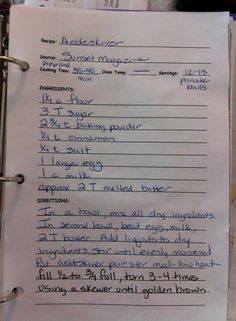 Recipe: Aebleskiver
Source: Sunset Magazine
prep and
Cooking Time: 35-40 Oven Temp: — Servings: 12-13
min pancake
balls
INGREDIENTS:
1 1/4 c flour
3 T sugar
2 3/4 t baking powder
1/4 t cinnamon
1/4 t salt
1 large egg
1 c milk
approx 2 T melted butter
DIRECTIONS:
In a bowl, mix all dry ingredients.
In second bowl, beat egg, milk,
2 T butter. Add liquids to dry
ingredients, stir until evenly moistened.
Put aebleskiver pan over med-low heat
fill 1/2 to 3/4 full, turn 3-4 times
using a skewer until golden brown.